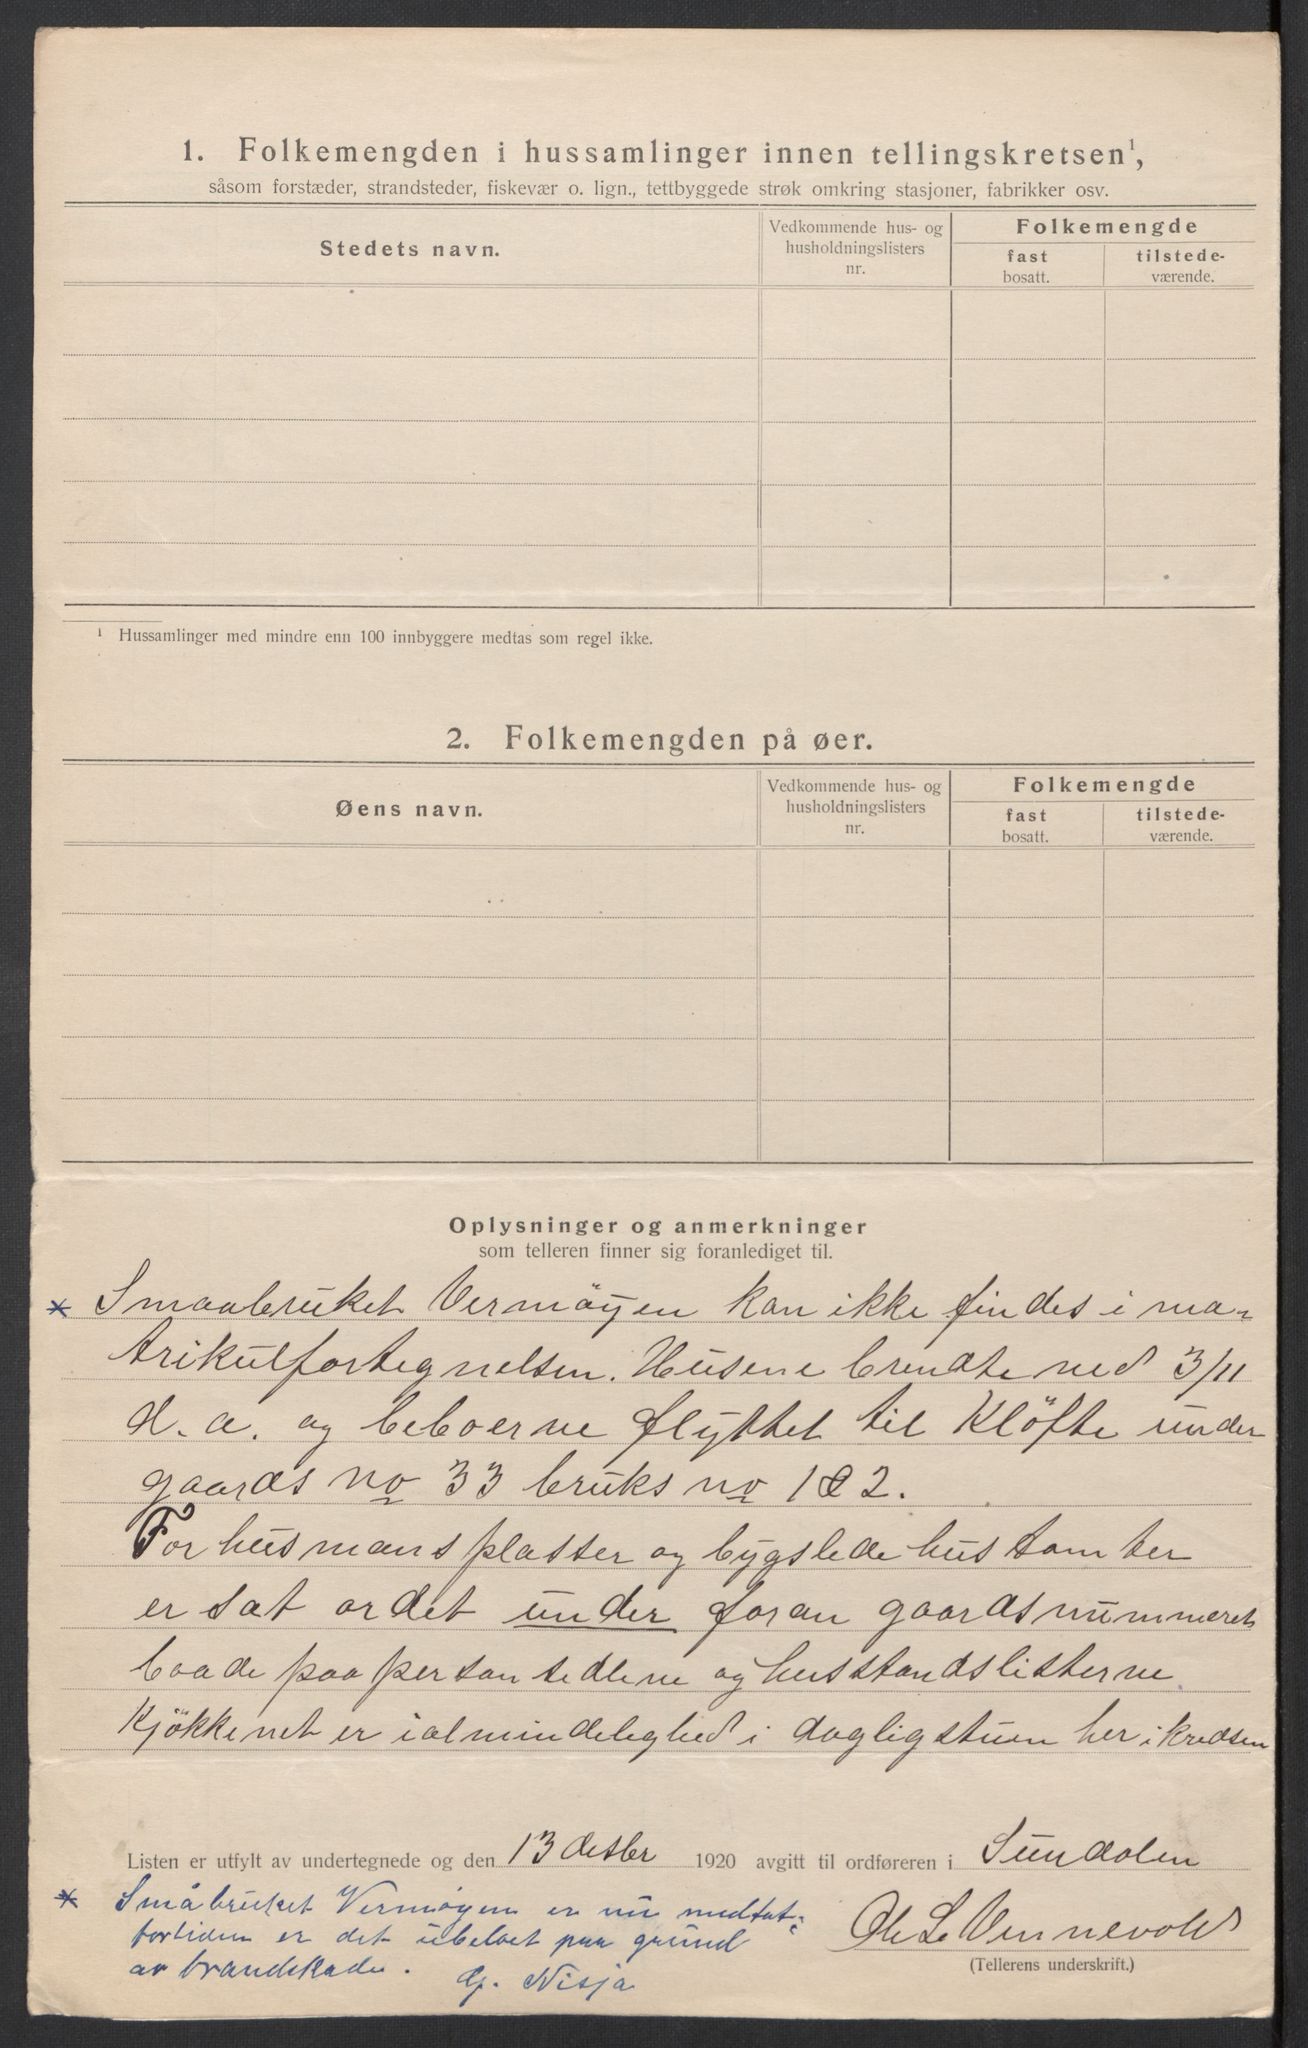 1. Folkemengden i hussamlinger innen tellingskretsen¹,
såsom forstæder, strandsteder, fiskevær o. lign., tettbyggede strøk omkring stasjoner, fabrikker osv.
Stedets navn.
Vedkommende hus- og
husholdningslisters
nr.
Folkemengde
fast
bosatt.
tilstede-
værende.
¹ Hussamlinger med mindre enn 100 innbyggere medtas som regel ikke.
2. Folkemengden på øer.
Øens navn.
Vedkommende hus- og
husholdningslisters
nr.
Folkemengde
fast
bosatt.
tilstede-
værende.
Oplysninger og anmerkninger
som telleren finner sig foranlediget til.
* Smaabruket Vermöyen kan ikke findes i ma-
trikulfortegnelsen. Husene brendte ned 3/11
d. a. og beboerne flyttet til Klöfte under
gaards no 33 bruks no 1 & 2.
For husmansplasser og bygslede hustomter
er sat ordet under foran gaardsnummeret
baade paa personsedlene og husstandslisterne
Kjökkenet er i almindelighed i dagligstuen her i kredsen
Listen er utfylt av undertegnede og den 13 desbr 1920 avgitt til ordføreren i Sundalen
Ole L Vennevold
(Tellerens underskrift.)
* Småbruket Vermøyen er nu medtat;
fortiden er det ubeboet paa grund
av brandskade. Nisja